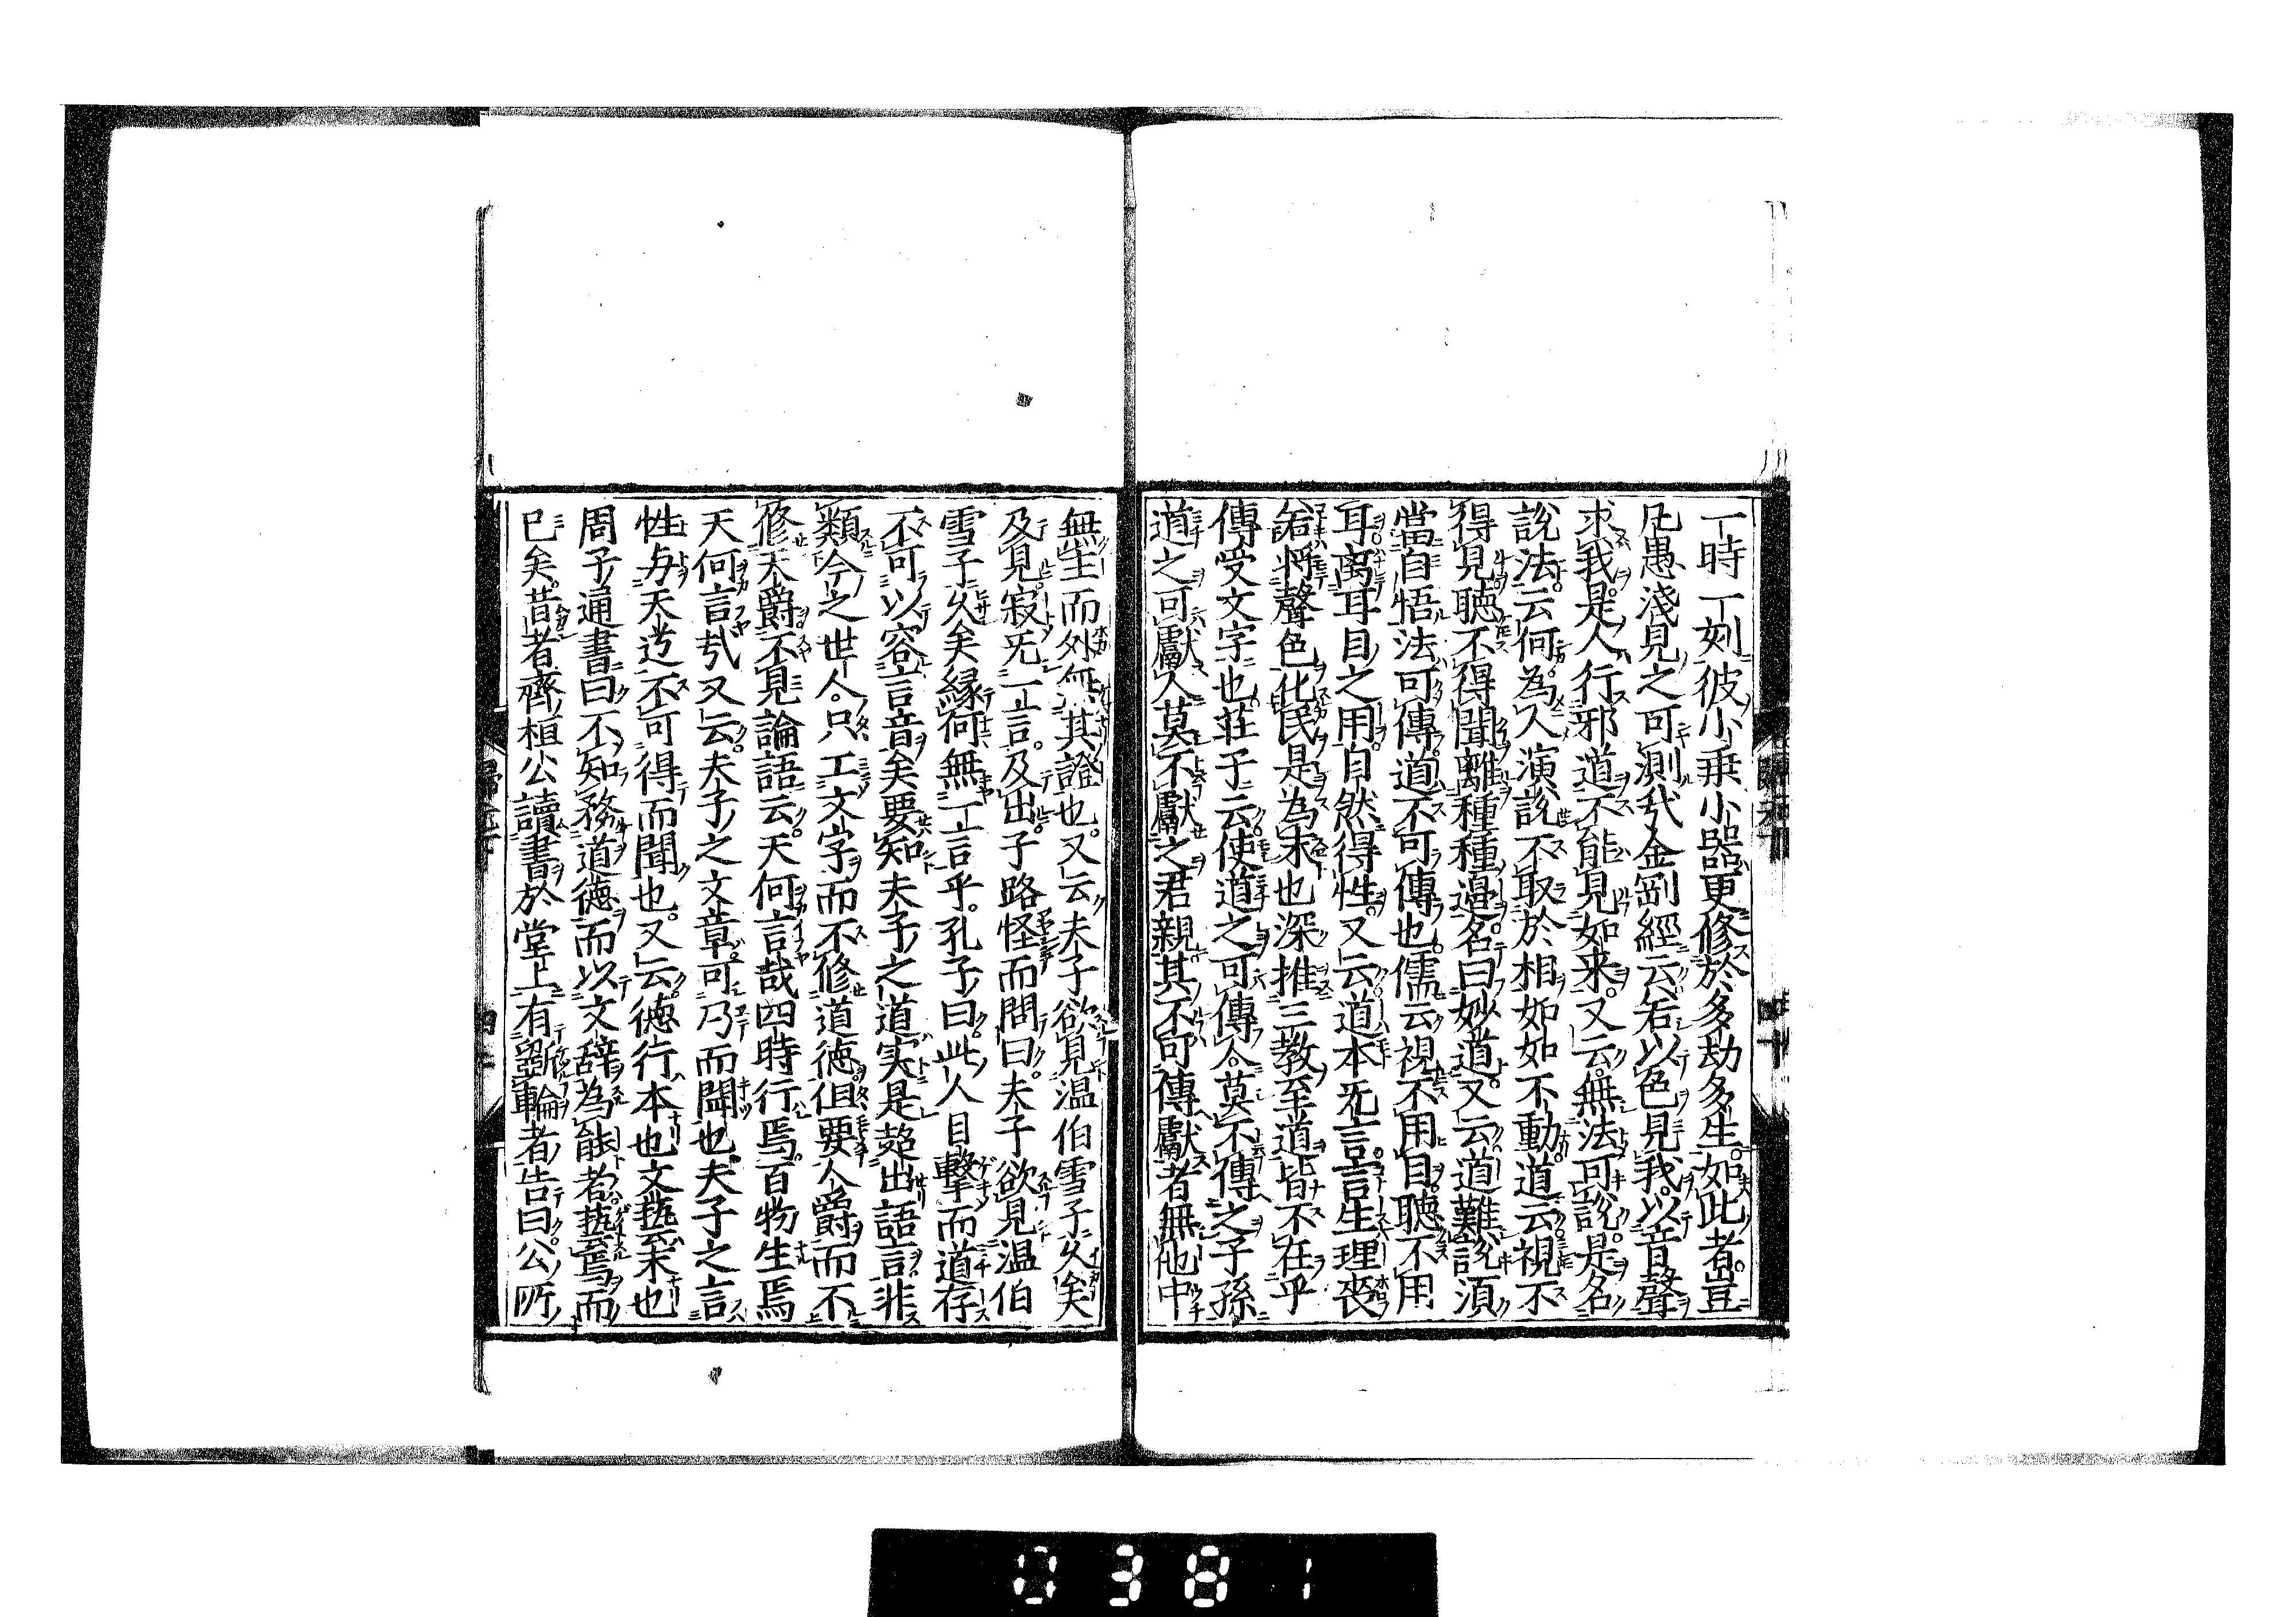 一時一刻彼小乗小器更修於多劫多生如此者豈
凡愚淺見之可測哉金剛經云若以色見我以音聲
求我是人行邪道不能見如来又云無法可說是名
說法云何為人演說不取於相如如不動道云視不
得見聽不得聞離種種邉名曰妙道又云道難說須
當自悟法可傳道不可傳也儒云視不用目聽不用
耳离耳目之用自然得性又云道本无言言生理喪
若将聲色化民是為末也深推三教至道皆不在乎
傳受文字也莊子云使道之可傳人莫不傳之子孫
道之可獻人莫不獻之君親其不可傳獻者無他中
無主而外無其證也又云夫子欲見温伯雪子久矣
及見寂无一言及出子路怪而問曰夫子欲見温伯
雪子久矣縁何無一言乎孔子曰此人目擊而道存
不可以容言音矣要知夫子之道実是超出語言非
類今之世人只工文字而不修道徳但要人爵而不
修天爵不見論語云天何言哉四時行焉百物生焉
天何言哉又云夫子之文章可乃而聞也夫子之言
性与天道不可得而聞也又云徳行本也文藝末也
周子通書曰不知務道徳而以文辞為能者藝焉而
已矣昔者齊桓公讀書於堂上有斲輪者告曰公所
0381